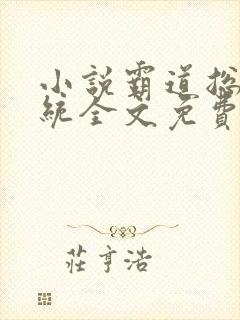 小説霸道总
統全文免費
莊亨浩